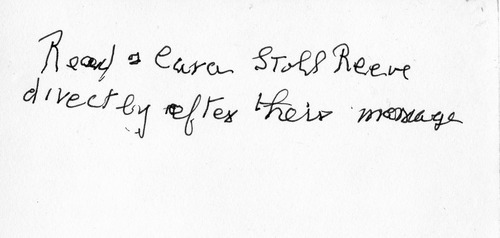 Read & Cara Stohl Reeve
directly after their message